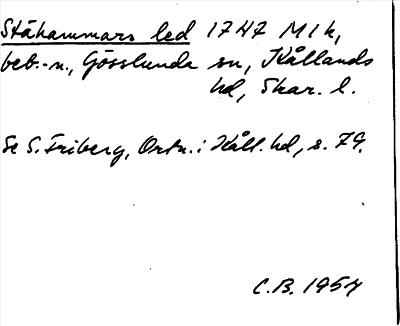 Ståhammars led 1747 Mlk,
beb.-n., Gösslunda sn, Kållands
hd, Skar. l.
Se S. Friberg, Ortn. i Kåll. hd, s. 79.
C.B. 1954